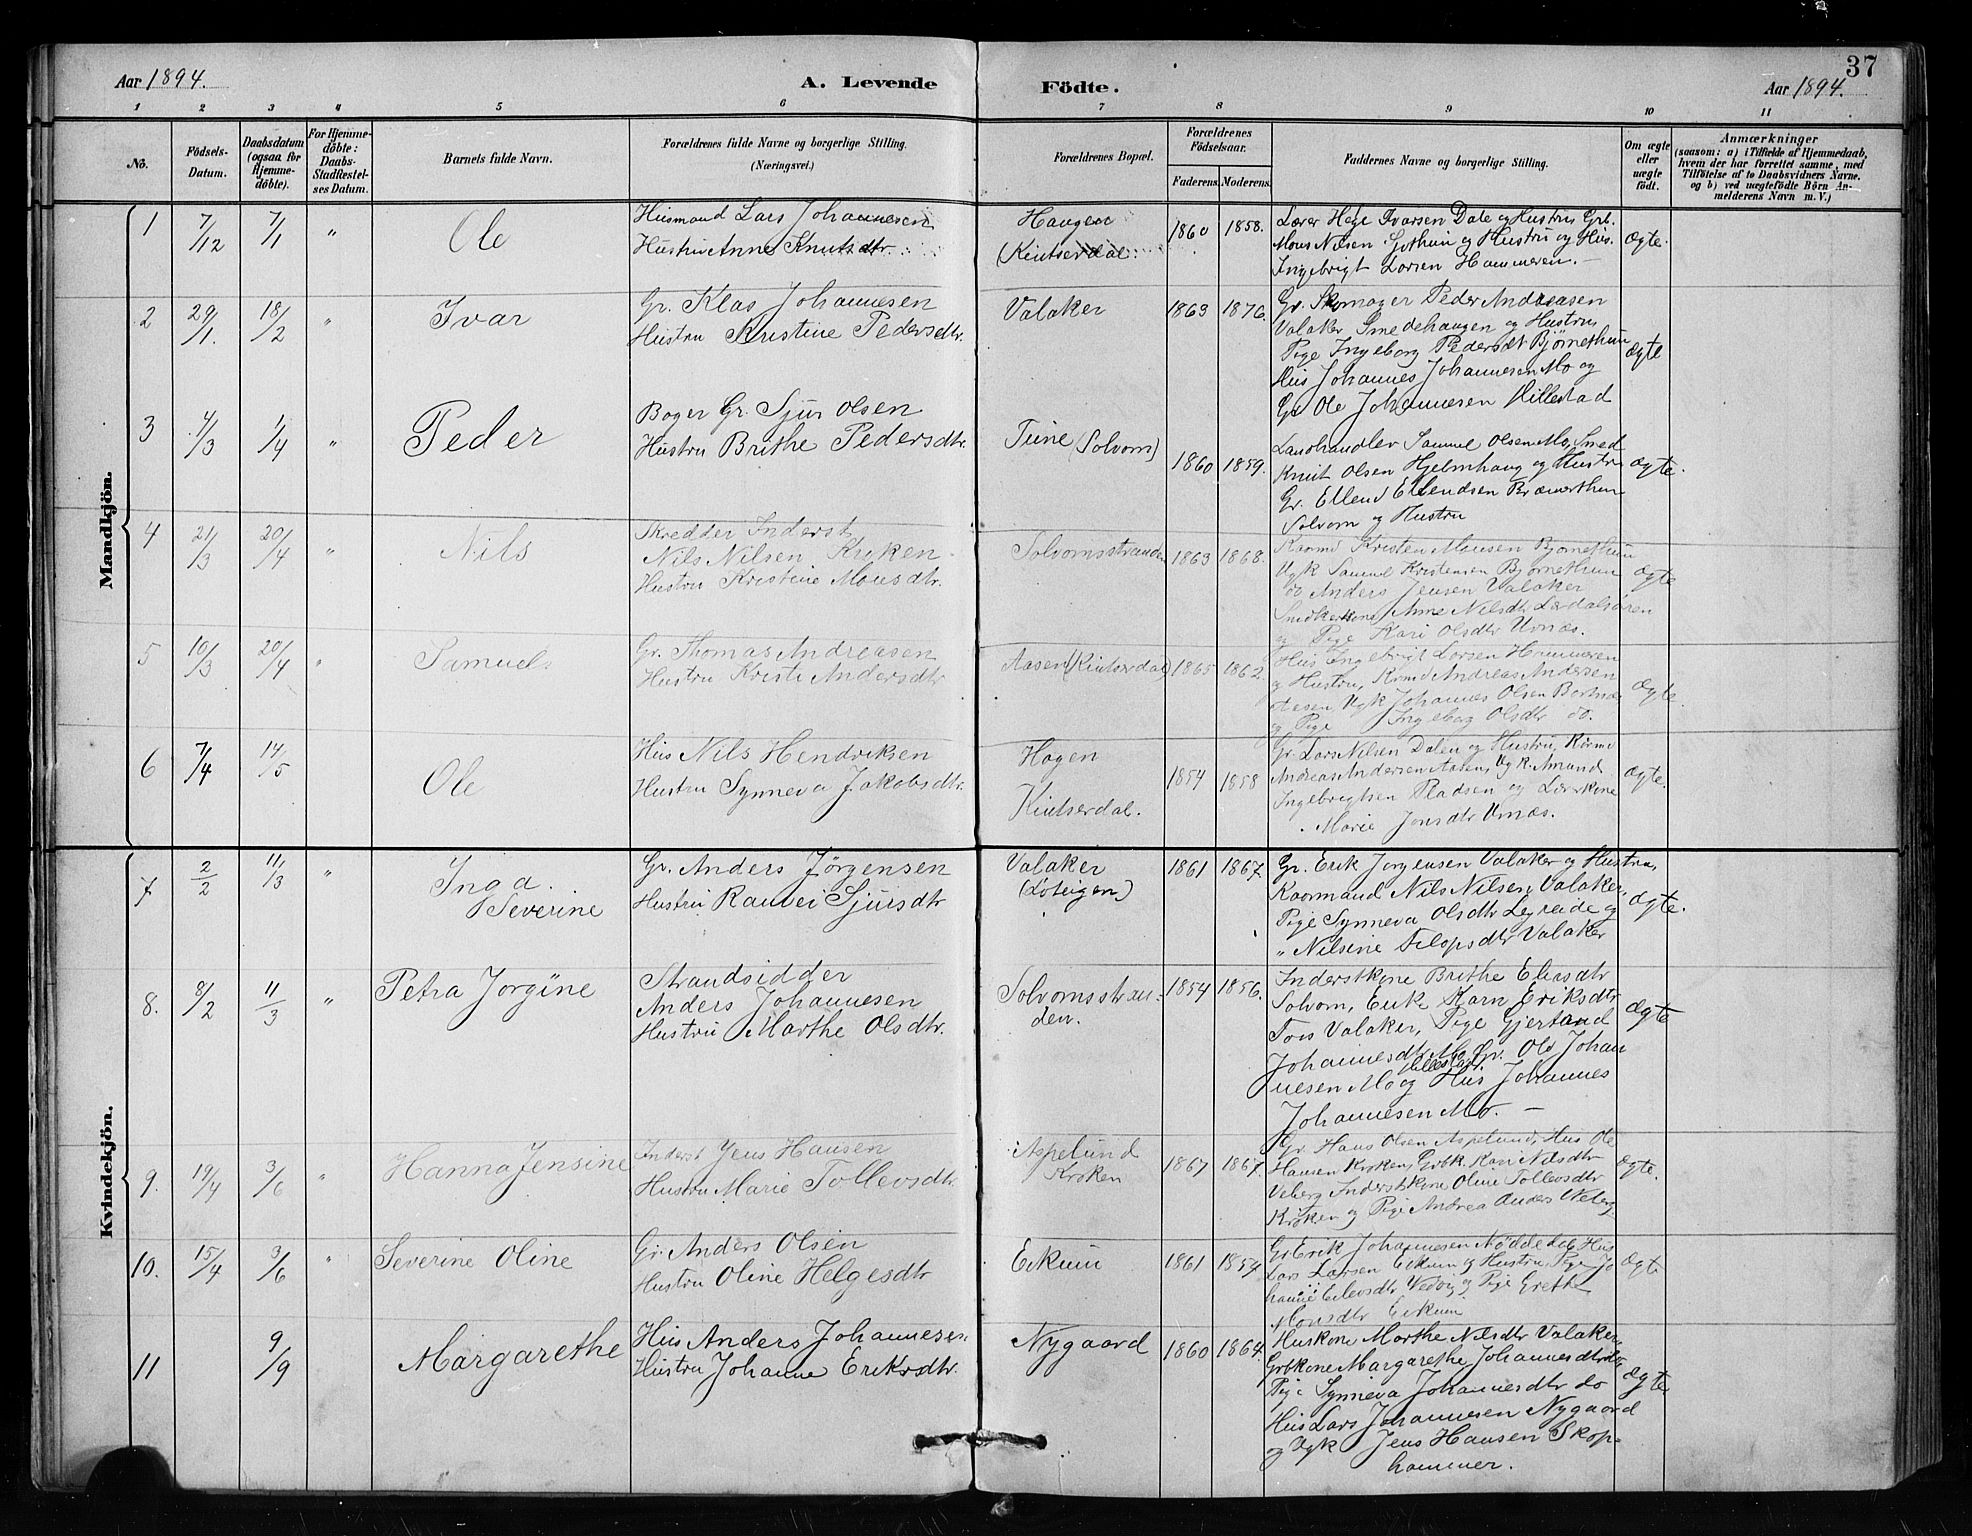 37
Aar 1894. A. Levende Födte. Aar 1894.
1 2 3 4 5 6 7 8 9 10 11
No.
Födsels-
Datum.
Daabsdatum
(ogsaa for
Hjemme-
döbte).
For Hjemme-
döbte:
Daabs-
Stadfæstel-
ses Datum.
Barnets fulde Navn.
Forældrenes fulde Navne og borgerlige Stilling.
(Næringsvei.)
Forældrenes Bopæl.
Forældrenes
Födselsaar.
Faderens. Moderens.
Faddernes Navne og borgerlige Stilling.
Om ægte
eller
uægte
født.
Anmærkninger
(saasom: a) i Tilfælde af Hjemmedaab,
hvem der har forrettet samme, med
Tilføielse af to Daabsvidners Navne.
og b) ved uægtefödte Börn An-
melderens Navn m. V.)
Mandkjön.
1 7/12 7/1 " Ole
Husmand Lars Johannesen
Hustru Anne Knutsdtr.
Haugen
(Kintserdal
1860 1858.
Lærer Helge Ivarsen Dale og Hustru, Grb.
Mons Nilsen Gothun og Hustru og Hus.
Ingebrigt Larsen Hammeren.-
Ægte.
2 29/1. 18/2 " Ivar
Gr. Klas Johannesen
Hustru Kristine Pedersdtr.
Valaker
1863 1870.
Gr. Skomager Peder Andreasen
Valaker Smedehaugen og Hustru,
Pige Ingeborg Pedersdt Bjørnethun
Hus Johannes Johannesen Mo og
Gr Ole Johannesen Hillestad
Ægte
3 4/3 1/4 " Peder
Bager Gr. Sjur Olsen
Hustru Brithe Pedersdtr.
Tune (Solvorn)
1860 1859.
Landhandler Samuel Olsen Mo, Smed
Knut Olsen Hjelmhaug og Hustru
Gr. Ellend Ellendsen Bræmerthun
Solvorn og Hustru
Ægte.
4 21/3 20/4 " Nils
Skredder Inderst
Nils Nilsen Kroken
Hustru Kristine Monsdtr.
Solvornsstranden
1863 1868.
Kaarmd Kristen Monsen Bjørnethun
Ugk Samuel Kristensen Bjørnethun
do Anders Jensen Valaker
Snedkerkone Anne Nilsdtr Lærdalsøren
og Pige Kari Olsdtr Urnæs.
Ægte
5 10/3 20/4 " Samuel
Gr. Thomas Andreasen
Hustru Kristi Andersdtr
Aasen (Kintserdal)
1865 1862.
Hus Ingebrigt Larsen Hammeren
og Hustru, Krmd Andreas Andersen
Aasen, Ugk Johannes Olsen
og Pige Ingeborg Olsdtr do.
Ægte.
6 7/4 14/5 Ole
Hus Nils Hendriksen
Hustru Synneva Jakobsdtr.
Hagen
Kintserdal.
1854 1858
Gr. Lars Nilsen Dalen og Hustru, Kårmd
Andreas Andersen Aasen, Ugk. Amund
Ingebrigtsen Pladsen og Lærerkone
Marie Jonsdtr Urnæs.
Ægte.
Kvindekjön.
7 2/2 11/3 " Inga.
Severine
Gr. Anders Jørgensen
Hustru Ranvei Sjursdtr
Valaker
(Loteigen)
1861 1867.
Gr. Erik Jorgensen Valaker og Hustru,
Kaarmand Nils Nilsen Valaker,
Pige Synneva Olsdtr Leyreide og
" Nilsine Filopsdtr Valaker
Ægte.
8. 8/2 11/3 " Petra Jorgine
Strandsidder
Anders Johannesen
Hustru Marthe Olsdtr.
Solvornsstran-
den.
1854 1856.
Inderstkone Brithe Eliasdtr
Solvorn, Enke Karn Eriksdtr
Tors Valaker, Pige Gjertrud
Johannesdtr Mo Gr. Ole Johan
Hillestad
nesen Mo og Hus Johannes
Johannesen Mo. -
Ægte
9. 19/4 3/6 " Hanna Jensine
Inderst Jens Hansen
Hustru Marie Tollevsdtr.
Aspelund
Kroken
1867 1867.
Gr. Hans Olsen Aspelund, Hus Ole
Hansen Kroken, Grbk. Kari Nilsdtr
Veberg Inderstkone Oline Tollevsdtr
Kroken og Pige Andrea Anders Veberg
Ægte.
10. 15/4 3/6 " Severine Oline
Gr. Anders Olsen
Hustru Oline Helgesdtr
Eikum
1861 1854
Gr Erik Johannesen Hus
Lars Larsen Eikum og Hustru, Pige Jo
hanne Eilevsdtr og Pige Grethe
Monsdtr Eikum
Ægte
11 9/9 Margarethe
Hus Anders Johannesen
Hustru Johanne Eriksdtr.
Nygaard
1860 1864.
Huskone Marthe Nilsdtr Valaker,
Grbkone Margarethe Johannesdtr do,
Pige Synneva Johannesdtr do
Hus Lars Johannesen Nygaard
og Ugk Jens Hansen Skop-
hammer.
Ægte